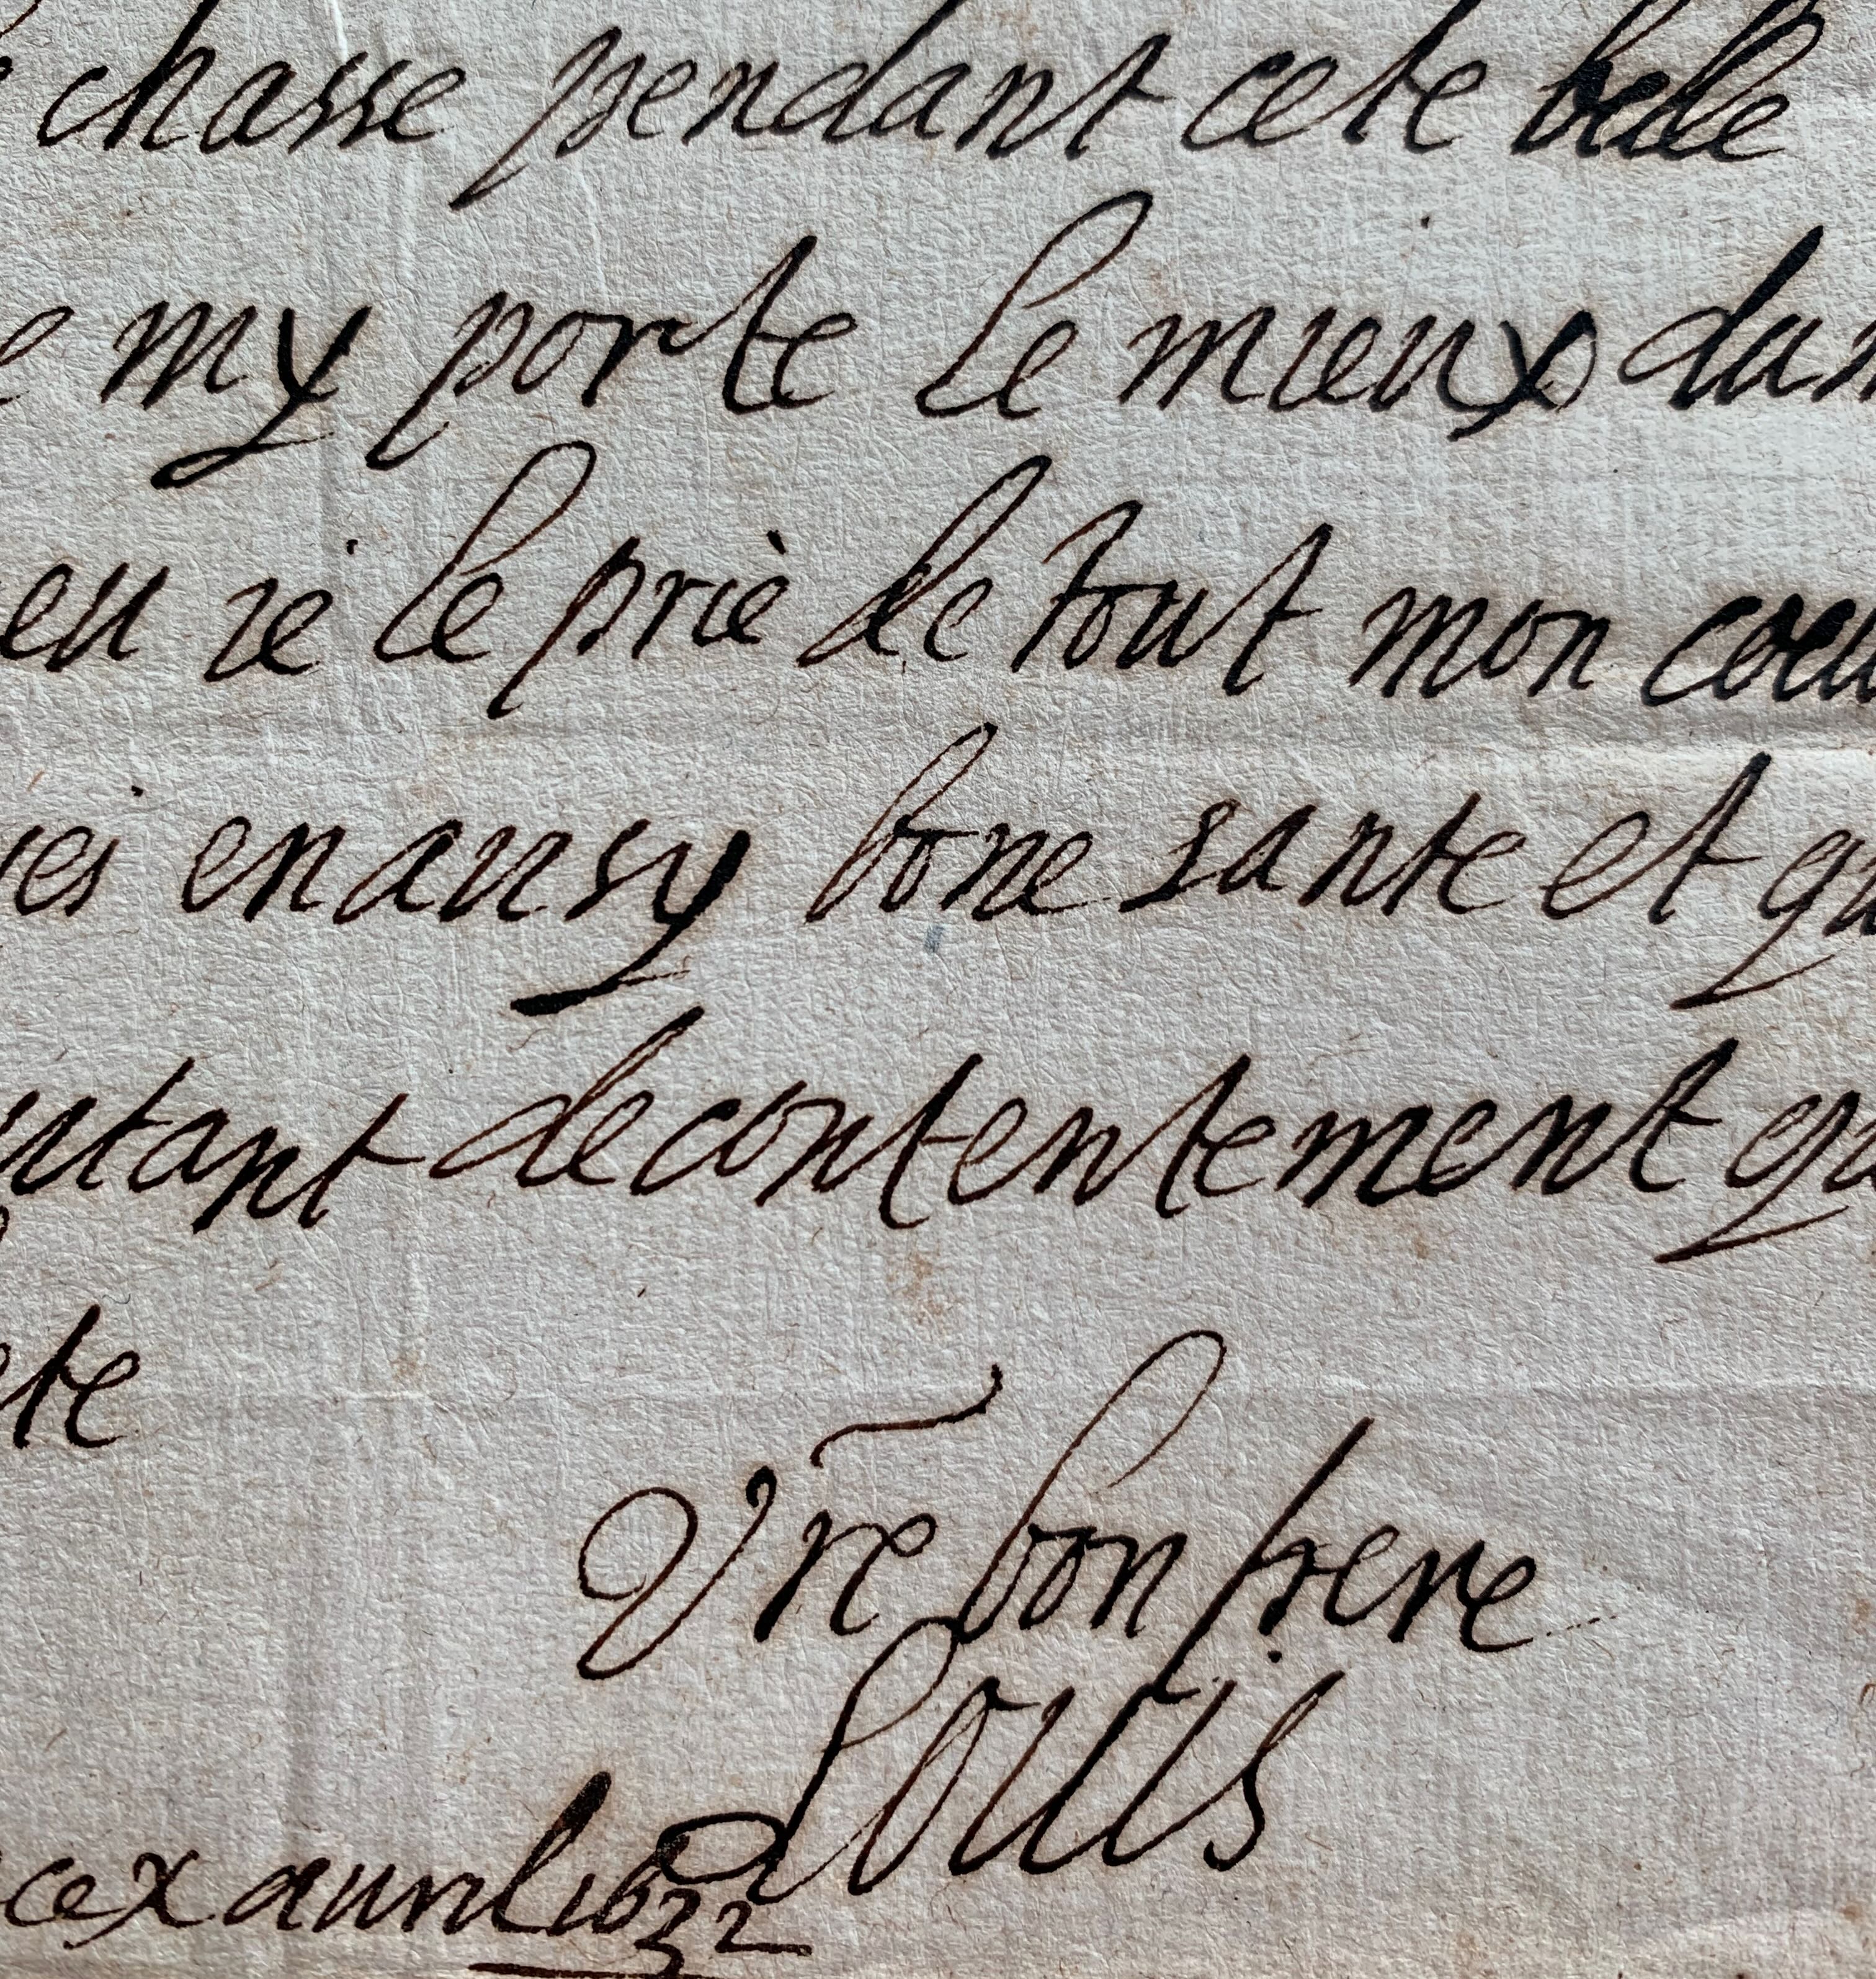 chasse pendant cete belle
my porte le mieux dan
eu ie le prie de tout mon coeu
ies en ausy bone sante et qu
utant de contentement qu
te
Vre bon frere
Louis
ce x auril 1632